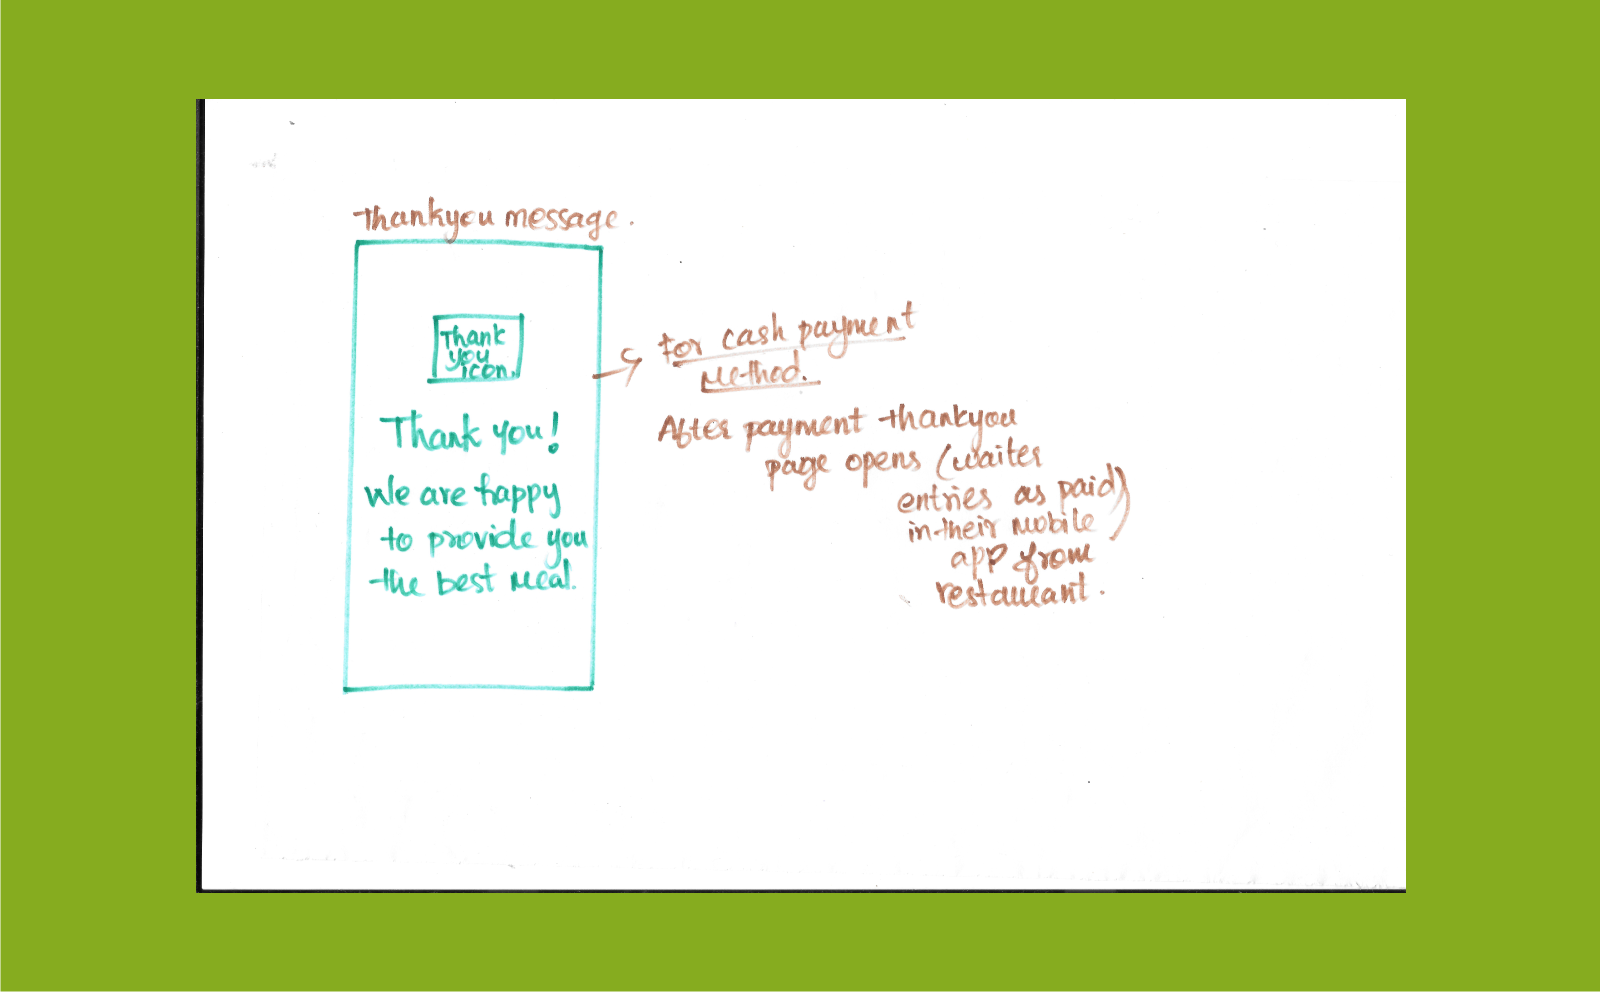 Thankyou message.
Thank
you
icon.
Thank you!
We are happy
to provide you
the best meal.
For cash payment
Method.
After payment thankyou
page opens (waiter
entries as paid)
in their mobile
app from
restaurant.